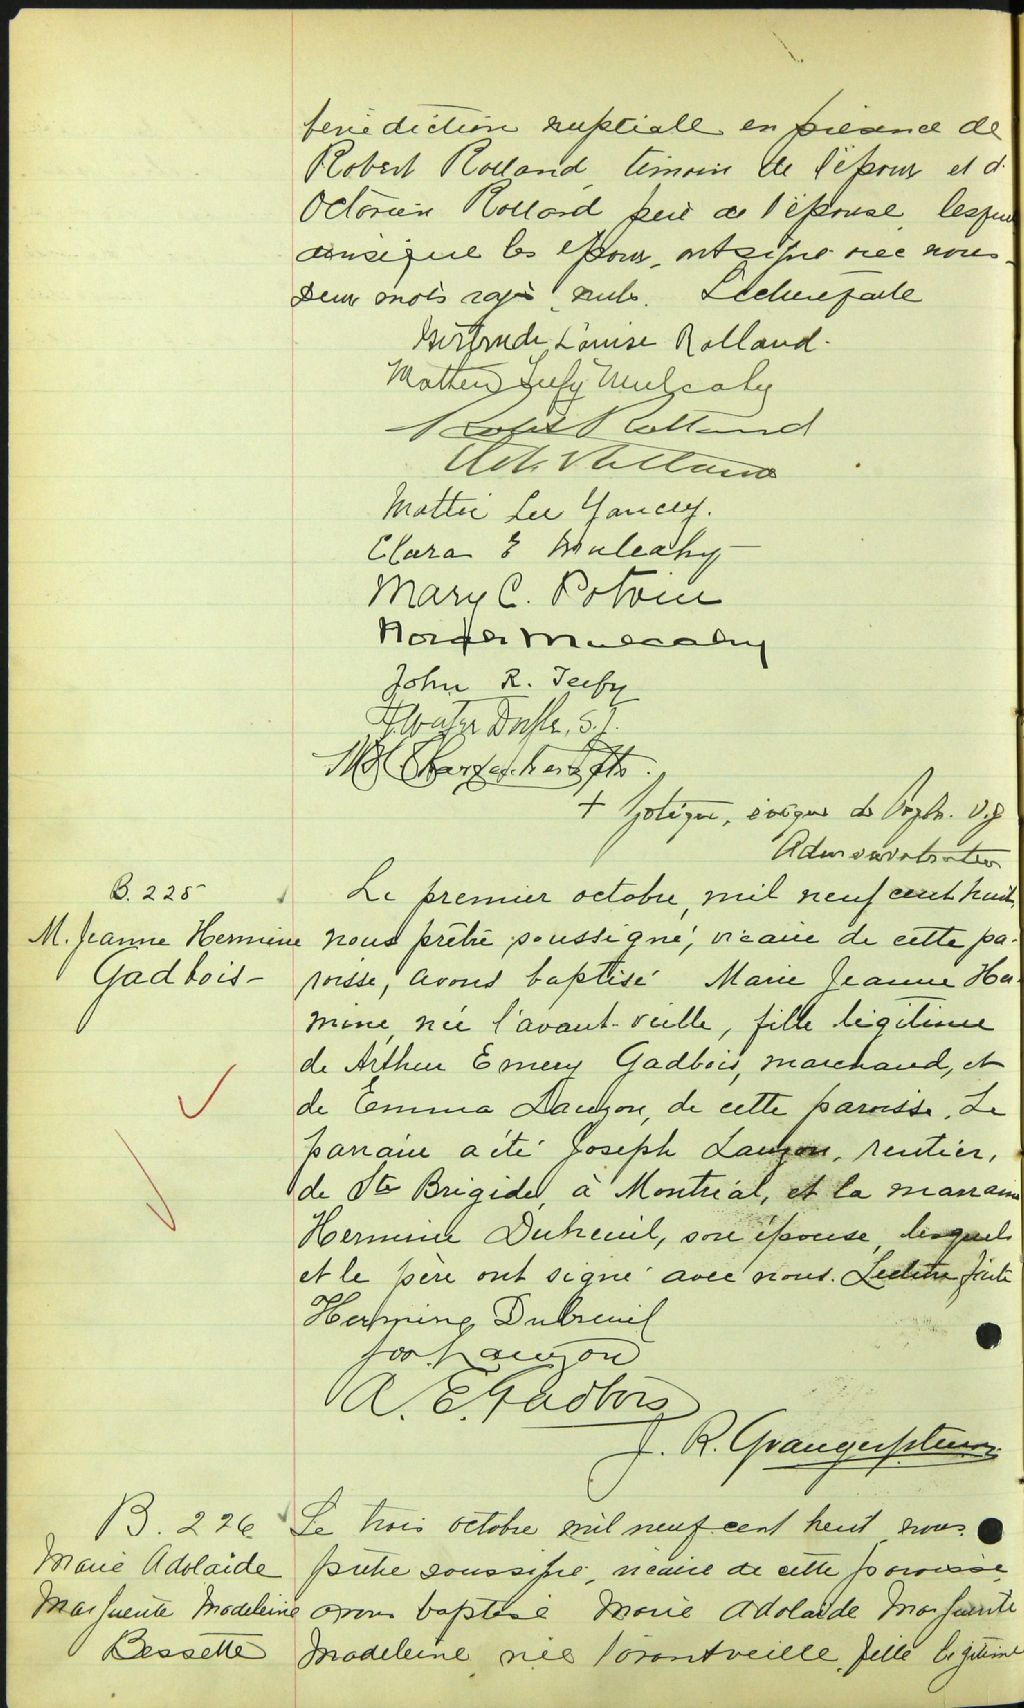 bénédiction nuptiale en présence de
Robert Rolland, témoin de l'époux et d'
Octavien Rolland père de l'épouse, lesquels
ainsi que les époux, ont signé avec nous.
Deux mots rayés nuls. Lecture faite
Gertrude Louise Rolland.
Matthew Teefy Mulcahy
Robert Rolland
Rolland
Mattie Lee Yancey.
Clara E Mulcahy
Mary C. Potvin
Mulcahy
John R. Teefy
S.J.
+ Zotique, évêque de Pogla. V.G
Administrateur
B. 225
M. Jeanne Hermine
Gadbois -
Le premier octobre, mil neuf cent huit,
nous prêtre soussigné, vicaire de cette pa-
roisse, avons baptisé Marie Jeanne Her-
mine, née l'avant-veille, fille légitime
de Arthur Emery Gadbois, marchand, et
de Emma Lauzon, de cette paroisse. Le
parrain a été Joseph Lauzon, rentier,
de Ste Brigide, à Montréal, et la marraine
Hermine Dubreuil, son épouse, lesquels
et le père ont signé avec nous. Lecture faite
Hermine Dubreuil
Jos. Lauzon
A. E. Gadbois
J. R. Granger ptre vic.
B. 226
Marie Adolaide
Marguerite Madeleine
Bessette
Le trois octobre mil neuf cent huit nous
prêtre soussigné, vicaire de cette paroisse,
avons baptisé Marie Adolaide Marguerite
Madeleine née l'avant veille, fille légitime